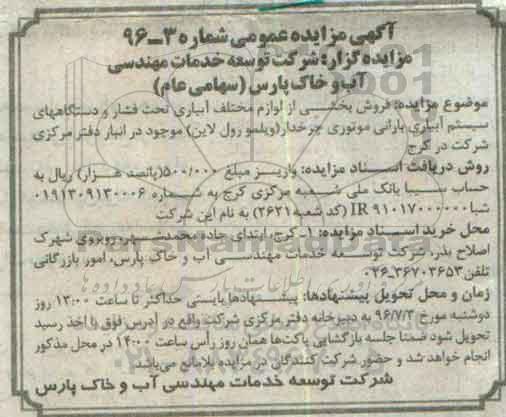 آگهی مزایده عمومی شماره ۳-۹۶
مزایده گزار: شرکت توسعه خدمات مهندسی
آب و خاک پارس (سهامی عام)
موضوع مزایده: فروش بخشی از لوازم مختلف آبیاری تحت فشار و دستگاههای
سیستم آبیاری بارانی موتوری چرخدار(ویلمو رول لاین) موجود در انبار دفتر مرکزی
شرکت در کرج
روش دریافت اسناد مزایده: واریز مبلغ ۵۰۰/۰۰۰(پانصد هزار) ریال به
حساب سیبا بانک ملی شعبه مرکزی کرج به شماره ۰۱۹۱۳۰۹۱۳۰۰۰۶
شبا IR ۹۱۰۱۷۰۰۰۰۰۰ (کد شعبه ۲۶۲۱) به نام این شرکت
محل خرید اسناد مزایده: ۱- کرج، ابتدای جاده محمدشهر، روبروی شهرک
اصلاح بذر، شرکت توسعه خدمات مهندسی آب و خاک پارس، امور بازرگانی
تلفن ۳۶۷۰۳۶۵۳-۰۲۶
زمان و محل تحویل پیشنهادها: پیشنهادها بایستی حداکثر تا ساعت ۱۳:۰۰ روز
دوشنبه مورخ ۹۶/۷/۳ به دبیرخانه دفتر مرکزی شرکت واقع در آدرس فوق با اخذ رسید
تحویل شود ضمنا جلسه بازگشایی پاکت‌ها همان روز رأس ساعت ۱۴:۰۰ در محل مذکور
انجام خواهد شد و حضور شرکت کنندگان در مزایده بلامانع می‌باشد.
شرکت توسعه خدمات مهندسی آب و خاک پارس
ParsNamadData